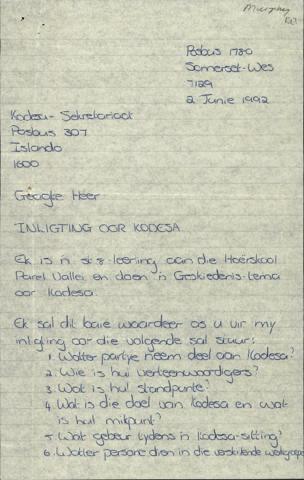 Murphy
Posbus 1780
Somerset-Wes
7129
2 Junie 1992
Kodesa - Sekretariaat
Posbus 307
Islando
1600
Geagte Heer
INLIGTING OOR KODESA.
Ek is 'n st 8-leerling aan die Hoërskool
Parel Vallei en doen 'n Geskiedenis-tema
oor Kodesa.
Ek sal dit baie waardeer as u vir my
inligting oor die volgende sal stuur:
1. Watter partye neem deel aan Kodesa?
2. Wie is hul verteenwoordigers?
3. Wat is hul standpunte?
4. Wat is die doel van Kodesa en wat
is hul mikpunt?
5. Wat gebeur tydens 'n Kodesa-sitting?
6. Watter persone dien in die verskillende werkgroepe